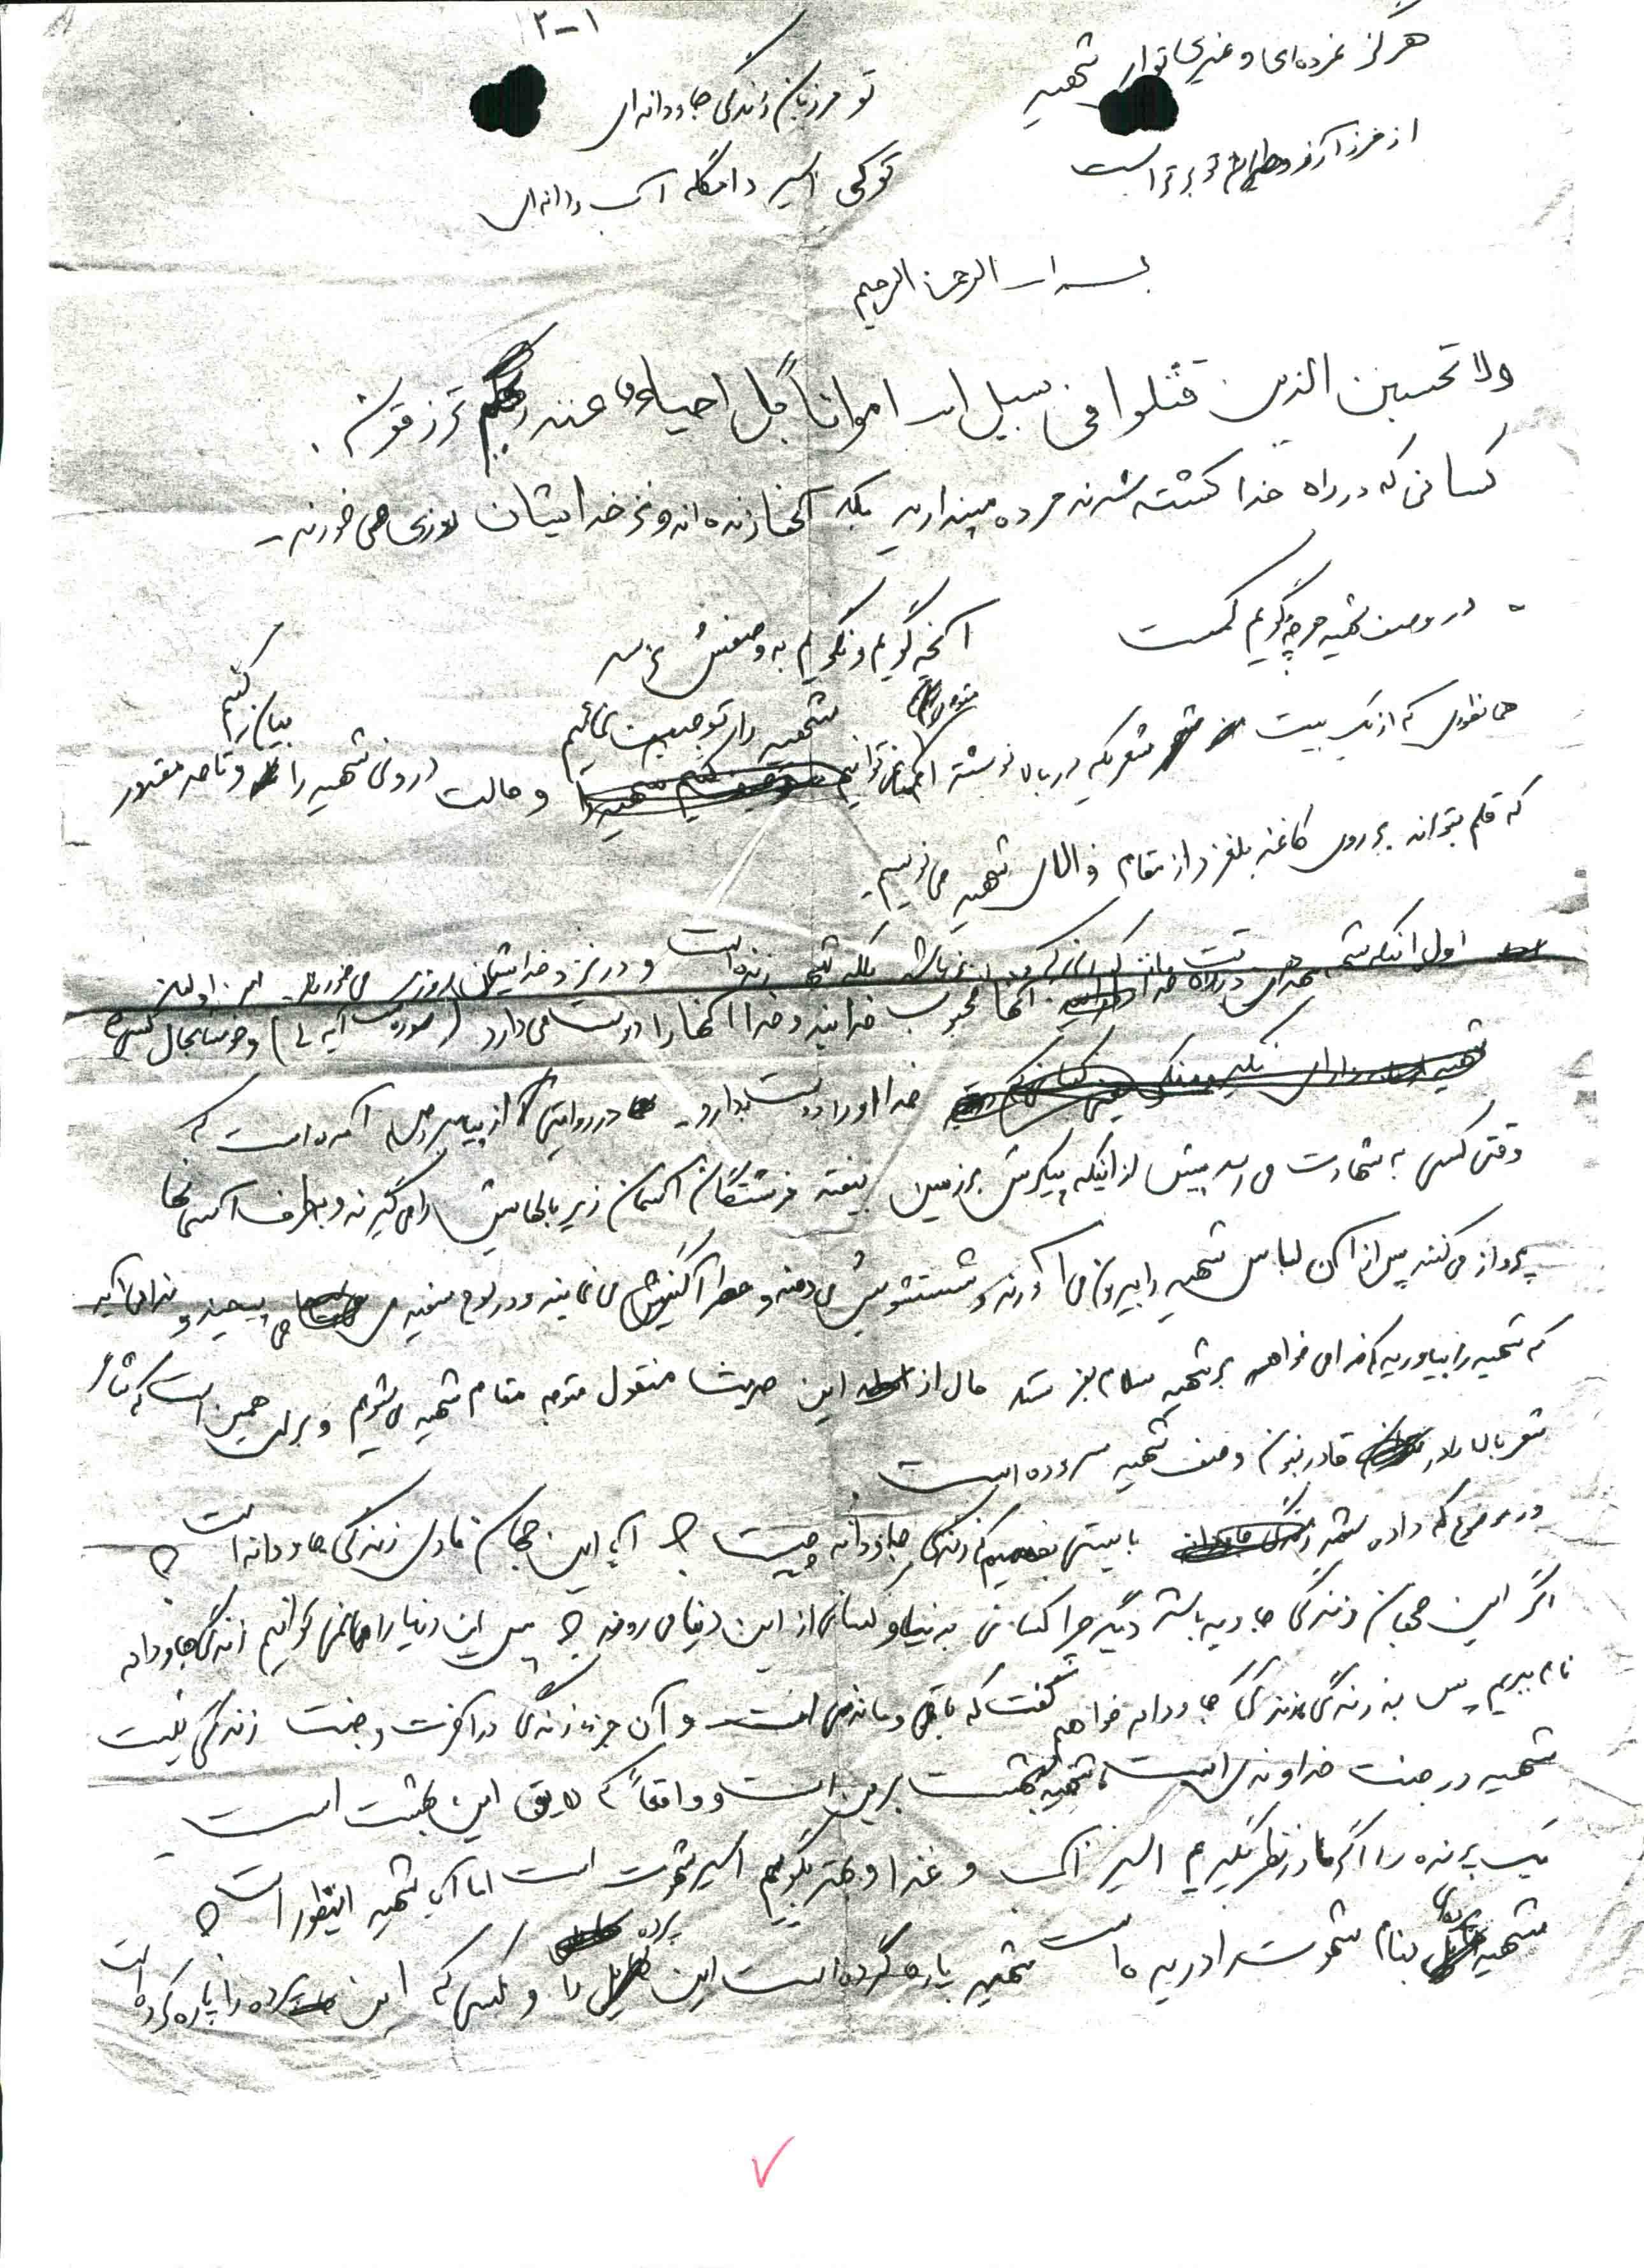 ۱-۲
هرگز نمرده‌ای و نمیری تو ای شهید
تو مرزبان زندگی جاودانه‌ای
از مرز آرزو تو برتر است
تو کی اسیر دامگه آب و دانه‌ای
بسم الله الرحمن الرحیم
ولا تحسبن الذین قتلوا فی سبیل الله امواتاً بل احیاء عند ربهم ترزقون.
کسانی که در راه خدا کشته شدند مرده مپندارید بلکه آنها زنده‌اند و نزد خدایشان روزی می‌خورند.
- در وصف شهید هر چه گویم کمست
آنچه گویم و نگویم به وصفش نرسد
همانطوری که از یک بیت شعریکه در بالا نوشته‌ام نمی‌توانیم شهید را توصیف نمائیم و حالت درونی شهید را بیان کنیم و تا حد مقدور
که قلم بتواند بر روی کاغذ بلغزد از مقام والای شهید می‌نویسیم.
اول اینکه بلکه شهید زنده است و در نزد خدایشان روزی می‌خورند این اولین
در راه خدا آنها محبوب خدایند و خدا آنها را دوست می‌دارد (سوره آیه ) و خوشا بحال کسیکه
خدا او را دوست بدارد. در روایتی از پیامبر آمده است که
وقتی کسی به شهادت می‌رسد پیش از اینکه پیکرش بر زمین بیفتد فرشتگان آسمان زیر بالهایش را می‌گیرند و بطرف آسمانها
پرواز می‌کنند پس از آن لباس شهید را بیرون می‌آورند و شستشویش می‌دهند و عطرآگینش می‌نمایند و در سفیدی می پیچند و ندا می‌آید
که شهید را بیاورید که خدا می‌خواهد بر شهید سلام بفرستد حال از این حدیث منقول متوجه مقام شهید می‌شویم و برای همین است که شاعر
شعر بالا را در قادر نبودن وصف شهید سروده است.
در موضوع که داده شده بایستی بفهمیم که زندگی جاودانه چیست ؟ آیا این جهان مادی زندگی جاودانه است ؟
اگر این جهان زندگی جاوید باشد دیگر چرا کسانی به دنیا و کسانی از این دنیا می‌روند ؟ پس این دنیا را نمی‌توانیم زندگی جاودانه
نام ببریم پس به زندگی زندگی جاودانه خواهم گفت که باقی و ماندنی است و آن جز زندگی در آخرت و جنت زندگی نیست
شهید در جنت خداوندی است شهید بهشت برین است و واقعاً که لایق این بهشت است
یک پرنده را اگر ما در نظر بگیریم اسیر آب و غذا و بهتر بگوییم اسیر شهوت است اما آیا شهید اینطور است ؟
شهید بنام شهوت را دریده است شهید پاره کرده است این پرده را و کسی که این پرده را پاره کرده است